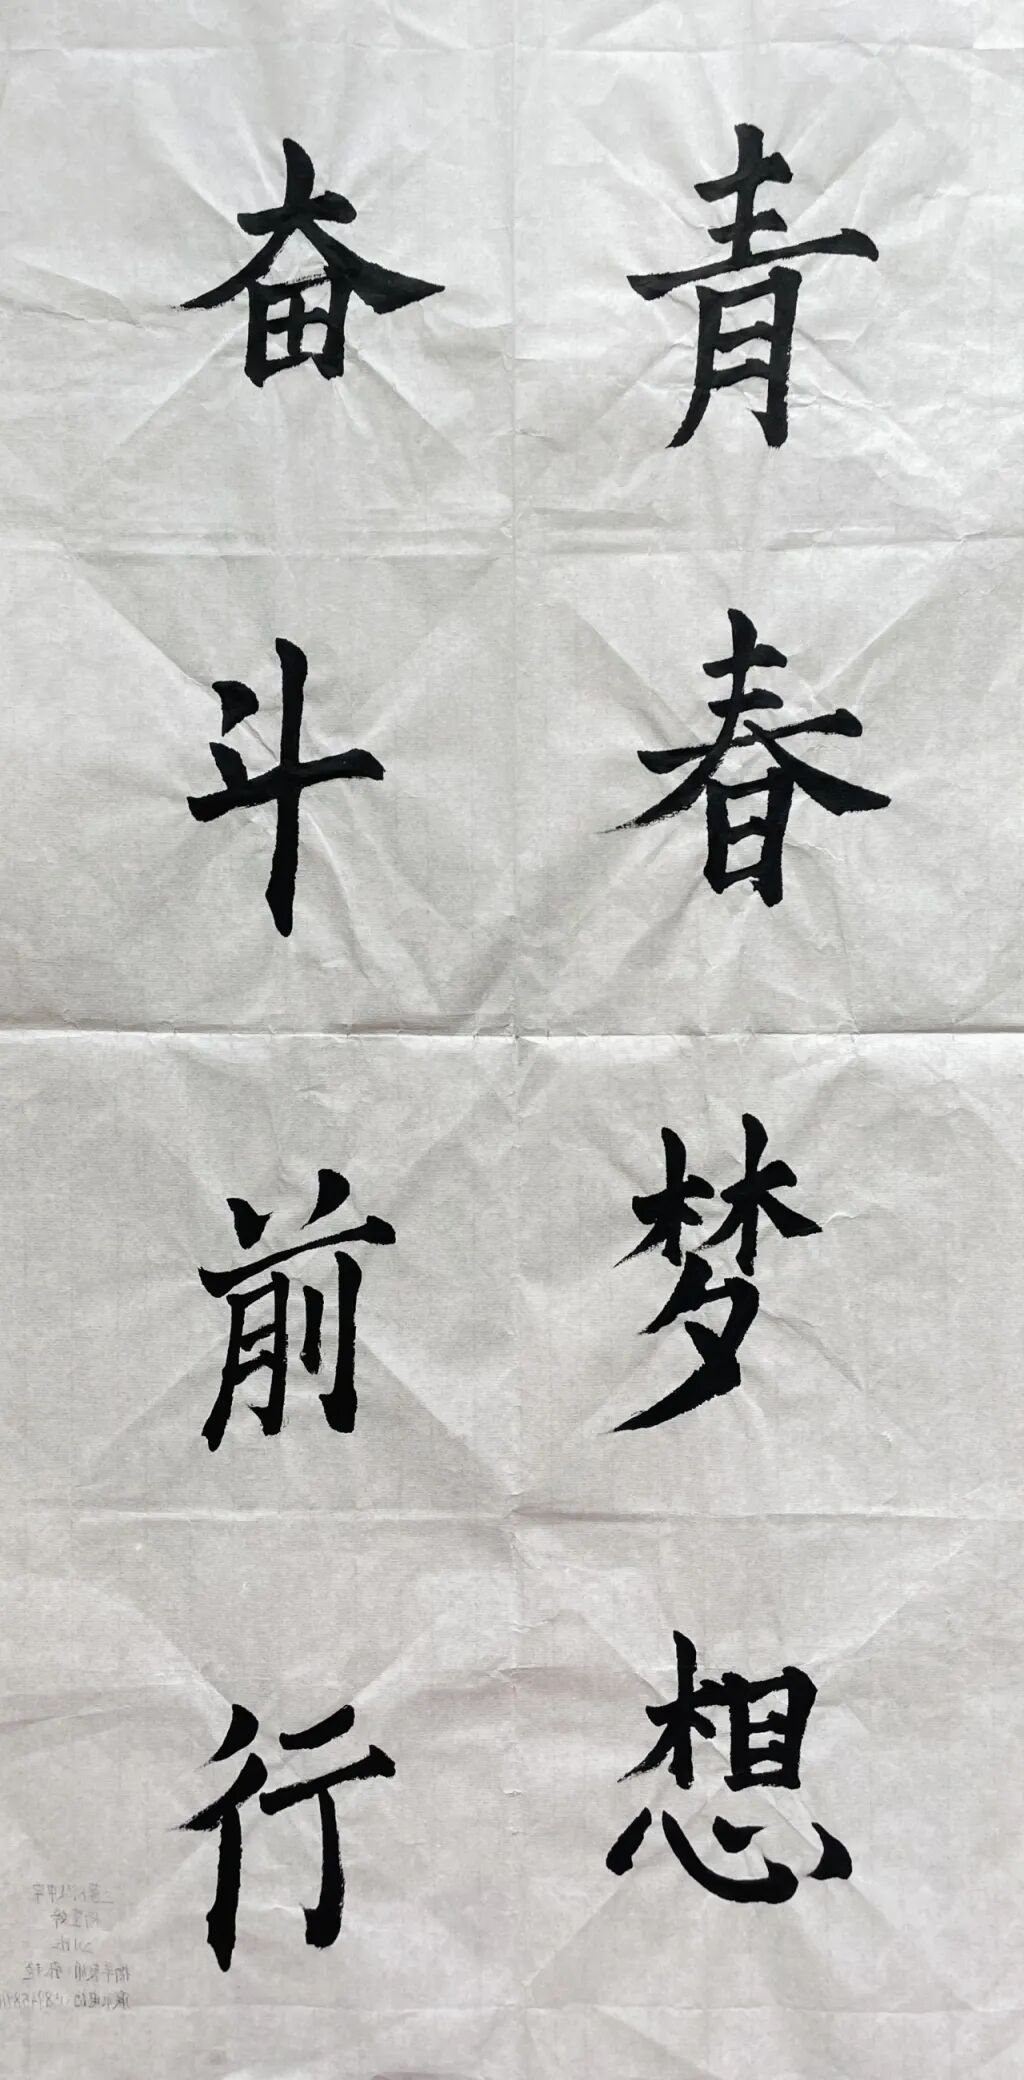 青春梦想
奋斗前行